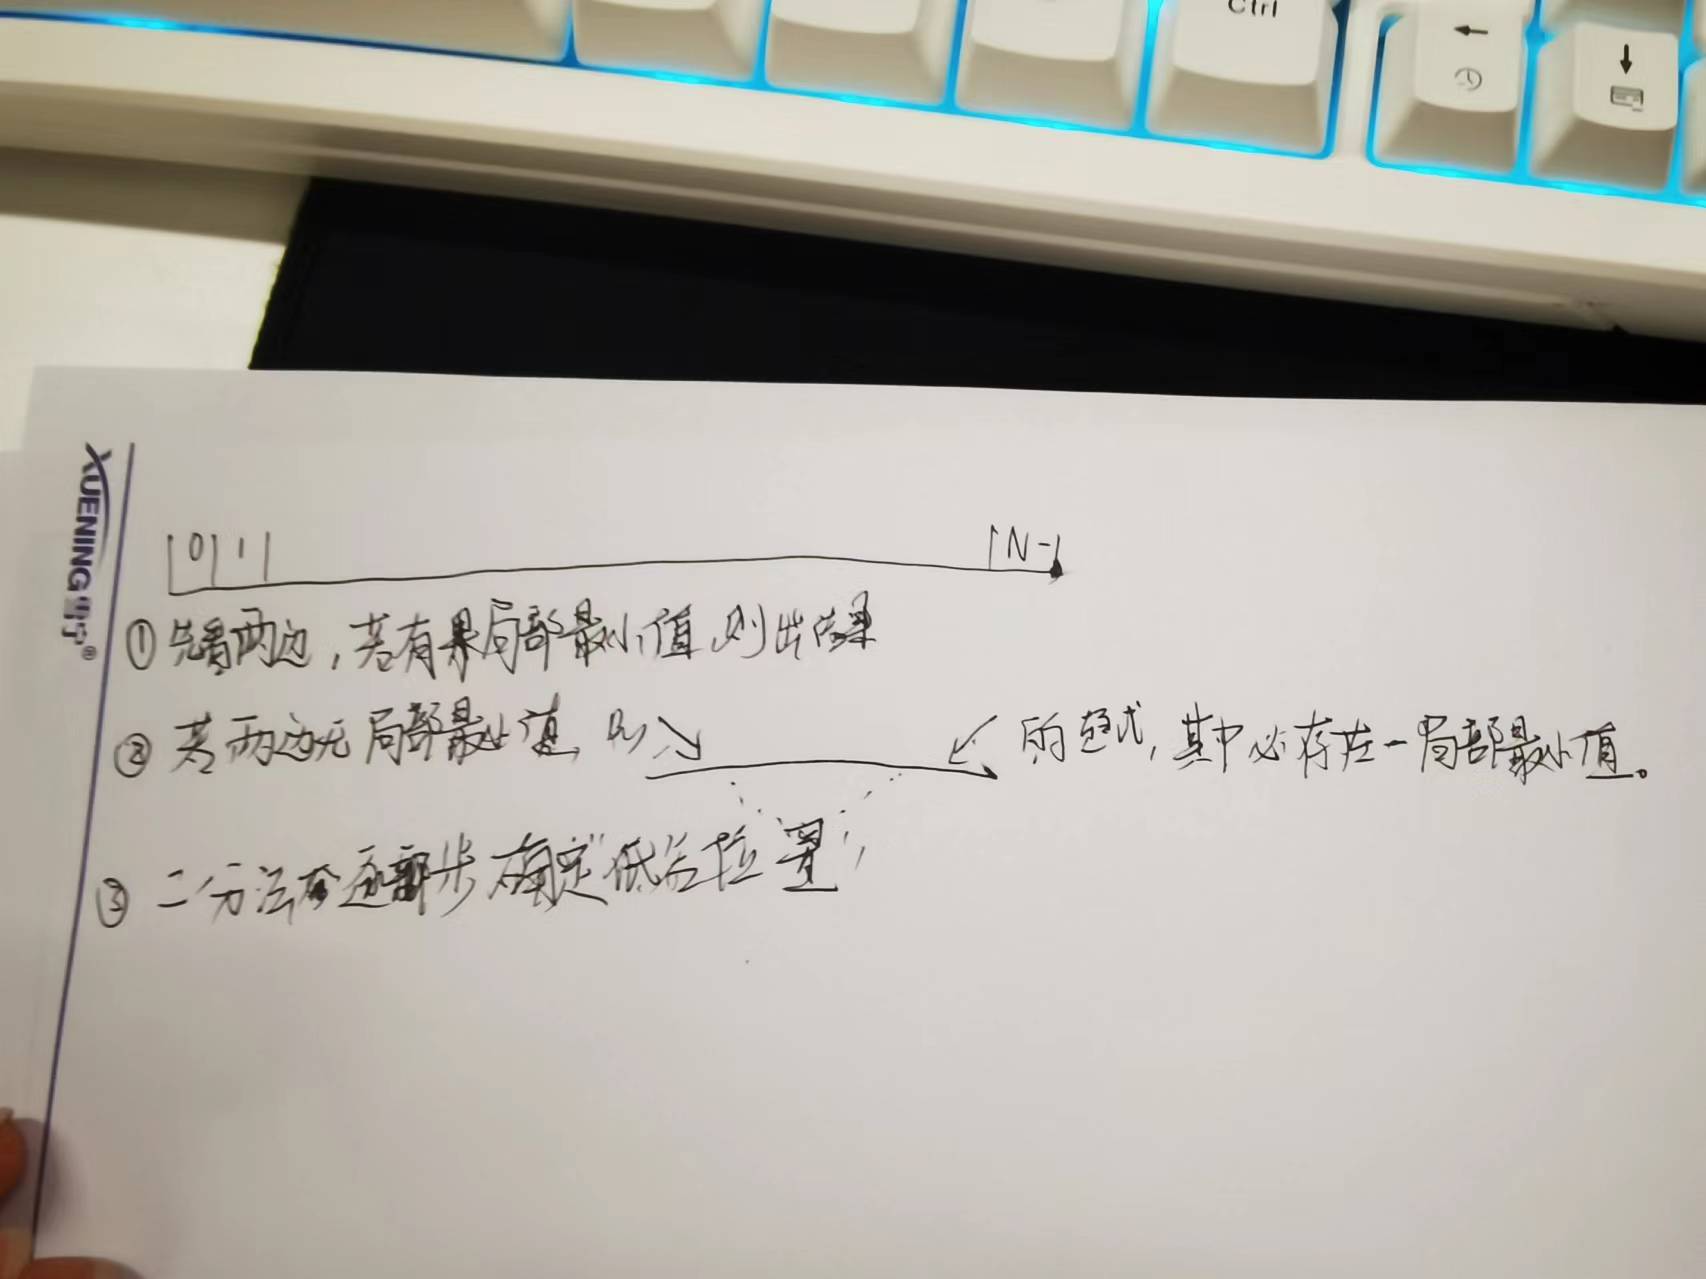 Ctrl
XUENING 学宁®
0 1 N-1
①先看两边,若有果局部最小值,则出结果
②若两边无局部最小值,则↘ ↙的趋式,其中必存在一局部最小值。
③二分法逐步确定“低谷位置”